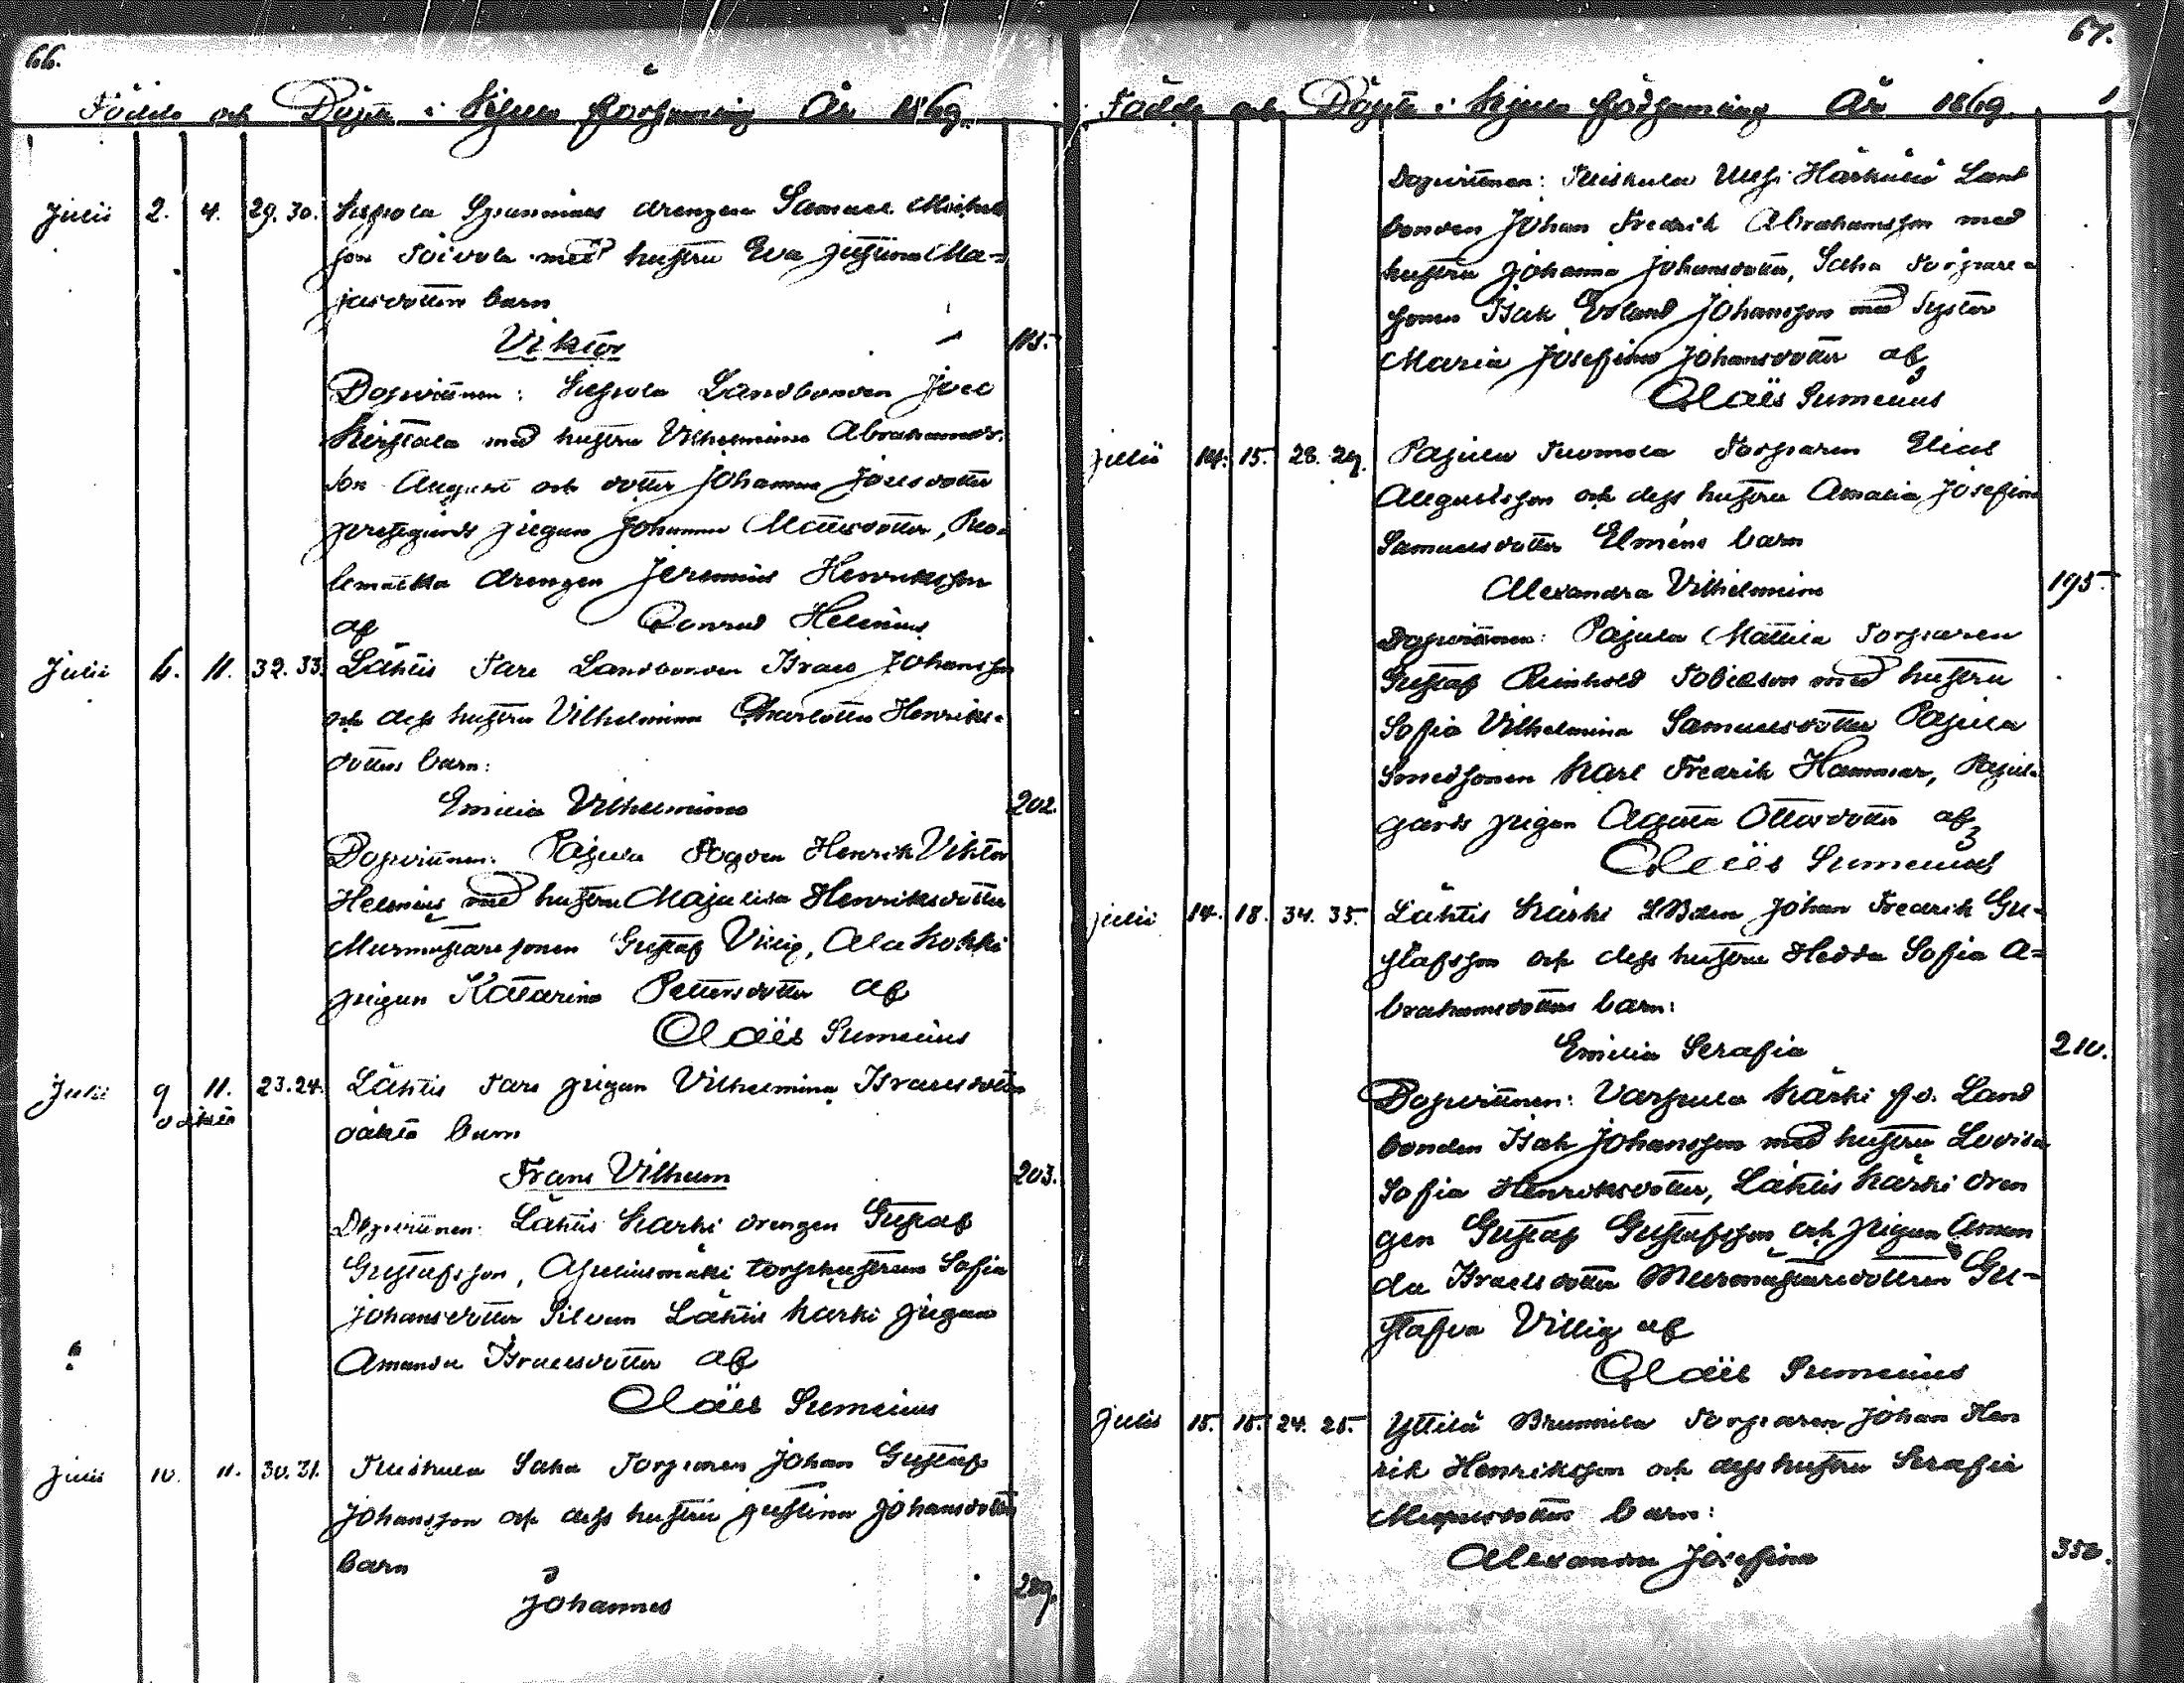 66.
Födde och Döpte i Kjulo församling År 1869.
Julii 2. 4. 29. 30. drengen Samuel
son Toivola med hustru Eva Justina Ma-
jasdotters barn
Viktor
105.
Dopvittnen: Landbonden Joel
Kirstala med hustru Vilhelmina Abrahamsd.
son August och dotter Johanna Joelsdotter
pigan Johanna Mattsdotter,
drengen Jeremias Henriksson
af Conrad Helenius
Julii 6. 11. 32. 33. Lähtis Tare Landbonden Israel Johansson
och dess hustru Vilhelmina Charlotta Henriks-
dotters barn:
Emilia Vilhelmina
202.
Dopvittnen: Pajula Henrik Viktor
Helenius med hustru Majalisa Henriksdotter
Murmästare sonen Gustaf Villig, Ala Kokki
pigan Katarina Pettersdotter af
Claës Sumelius
Julii 9 11. 23. 24. Lähtis Tare pigan Vilhelmina Israelsdotters
oäkta
oäkta barn
Frans Vilhelm
203.
Dopvittnen: Lähtis Karhi drengen Gustaf
Gustafsson, torphustrun Sofia
Johansdotter Silvan Lähtis Karhi pigan
Amanda Israelsdotter af
Claës Sumelius
Julii 10. 11. 30. 31. Tuiskula Saha Torparen Johan Gustaf
Johansson och dess hustru Justina Johansdotters
barn
Johannes
289.
67.
Födde och Döpte i Kjulo församling År 1869.
Dopvittnen: Tuiskula Uusi Härkälä Land
bonden Johan Fredrik Abrahamsson med
hustru Johanna Johansdotter, Saha Torpare-
sonen Isak Johansson med Syster
Maria Josefina Johansdotter af
Claës Sumelius
Julii 14. 15. 28. 29. Pajula Tuomola Torparen Elias
Augustsson och dess hustru Amalia Josefina
Samuelsdotter Elméns barn
Alexandra Vilhelmina
195.
Dopvittnen: Pajula Mattila Torparen
Gustaf Reinhold Tobiasson med hustru
Sofia Vilhelmina Samuelsdotter Pajula
Smedsonen Karl Fredrik Hammar, Pajula
gårds pigan Agata Ottosdotter af
Claës Sumelius
Julii 14. 18. 34. 35. Lähtis Kärki LBden Johan Fredrik Gu-
stafsson och dess hustru Hedda Sofia A-
brahamsdotters barn:
Emilia Serafia
210.
Dopvittnen: Varpula Kärki f.d. Land
bonden Isak Johansson med hustru Lovisa
Sofia Henriksdotter, Lähtis Kärki dren
gen Gustaf Gustafsson och pigan Aman
da Israelsdotter Murmästaredottren Gu-
stafva Villig af
Claës Sumelius
Julii 15. 18. 24. 25. Yttilä Brunnila Torparen Johan Hen
rik Henriksson och dess hustru Serafia
barn:
Alexandra Josefina